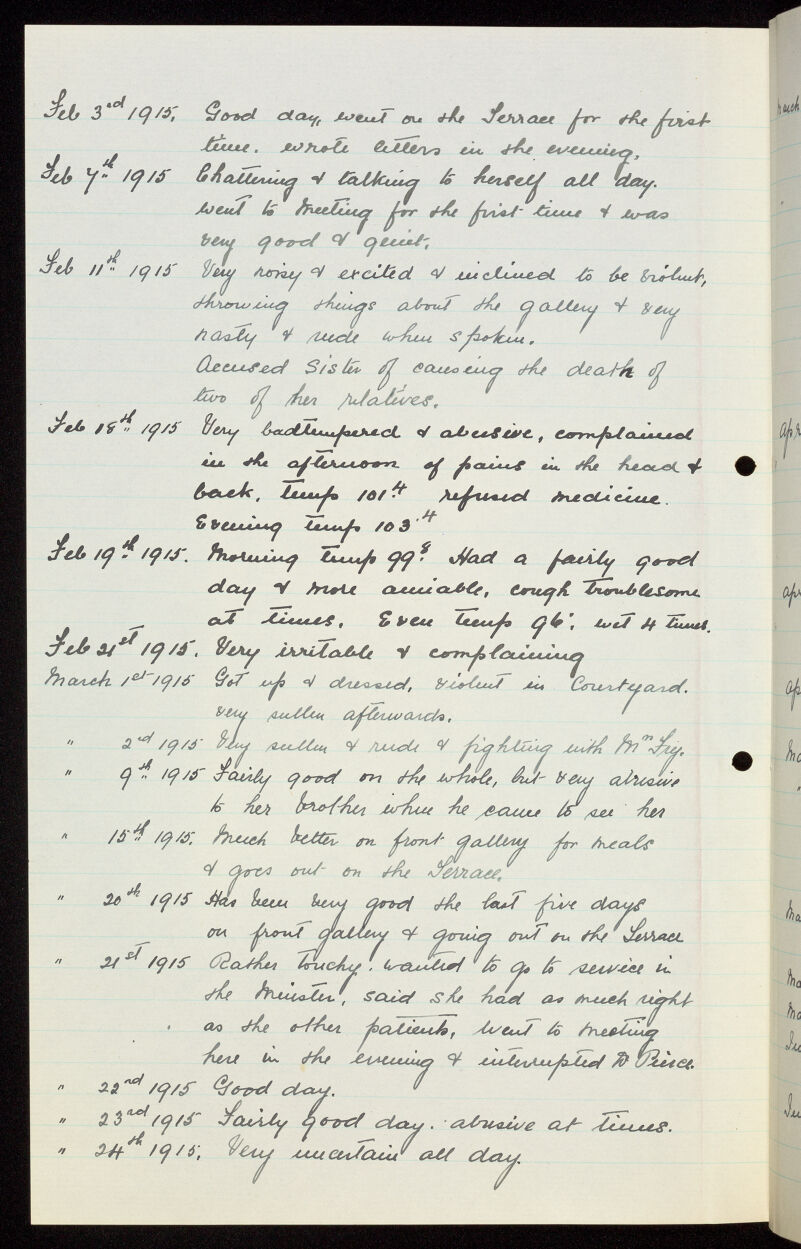 Feb 3rd 1915. Good day, went on the Terrace for the first
time. wrote letters in the evening.
Feb 7th 1915 Chattering & talking to herself all day.
went to Meeting for the first time & was
very good & quiet.
Feb 11th 1915 Very noisy & excited & inclined to be violent,
throwing things about the gallery & very
nasty & rude when spoken.
Accused Sister of causing the death of
two of her relatives.
Feb 18th 1915 Very badtempered & abusive, complained
in the afternoon of pains in the head &
back. temp 101.4 refused medicine.
Evening temp 103.4
Feb 19th 1915. Morning temp 99.8 Had a fairly good
day & more amiable, cough troublesome
at times. Even temp 96°. wet 4 times.
Feb 21st 1915. Very irritable & complaining
March 1st 1915 Got up & dressed, violent in Courtyard.
very sullen afterwards.
" 2nd 1915 Very sullen & rude & fighting with Mrs Fry.
" 9th 1915 Fairly good on the whole, but very abusive
to her brother when he came to see her
" 15th 1915. Much better on front gallery for meals
& goes out on the Terrace.
" 20th 1915 Has been very good the last five days
on front gallery & going out on the Terrace
" 21st 1915 Rather touchy. wanted to go to service in
the Minster, said she had as much right
as the other patients, went to Meeting
here in the evening & interrupted Dr Pierce.
" 22nd 1915 Good day.
" 23rd 1915 Fairly good day. abusive at times.
" 24th 1915. Very uncertain all day.